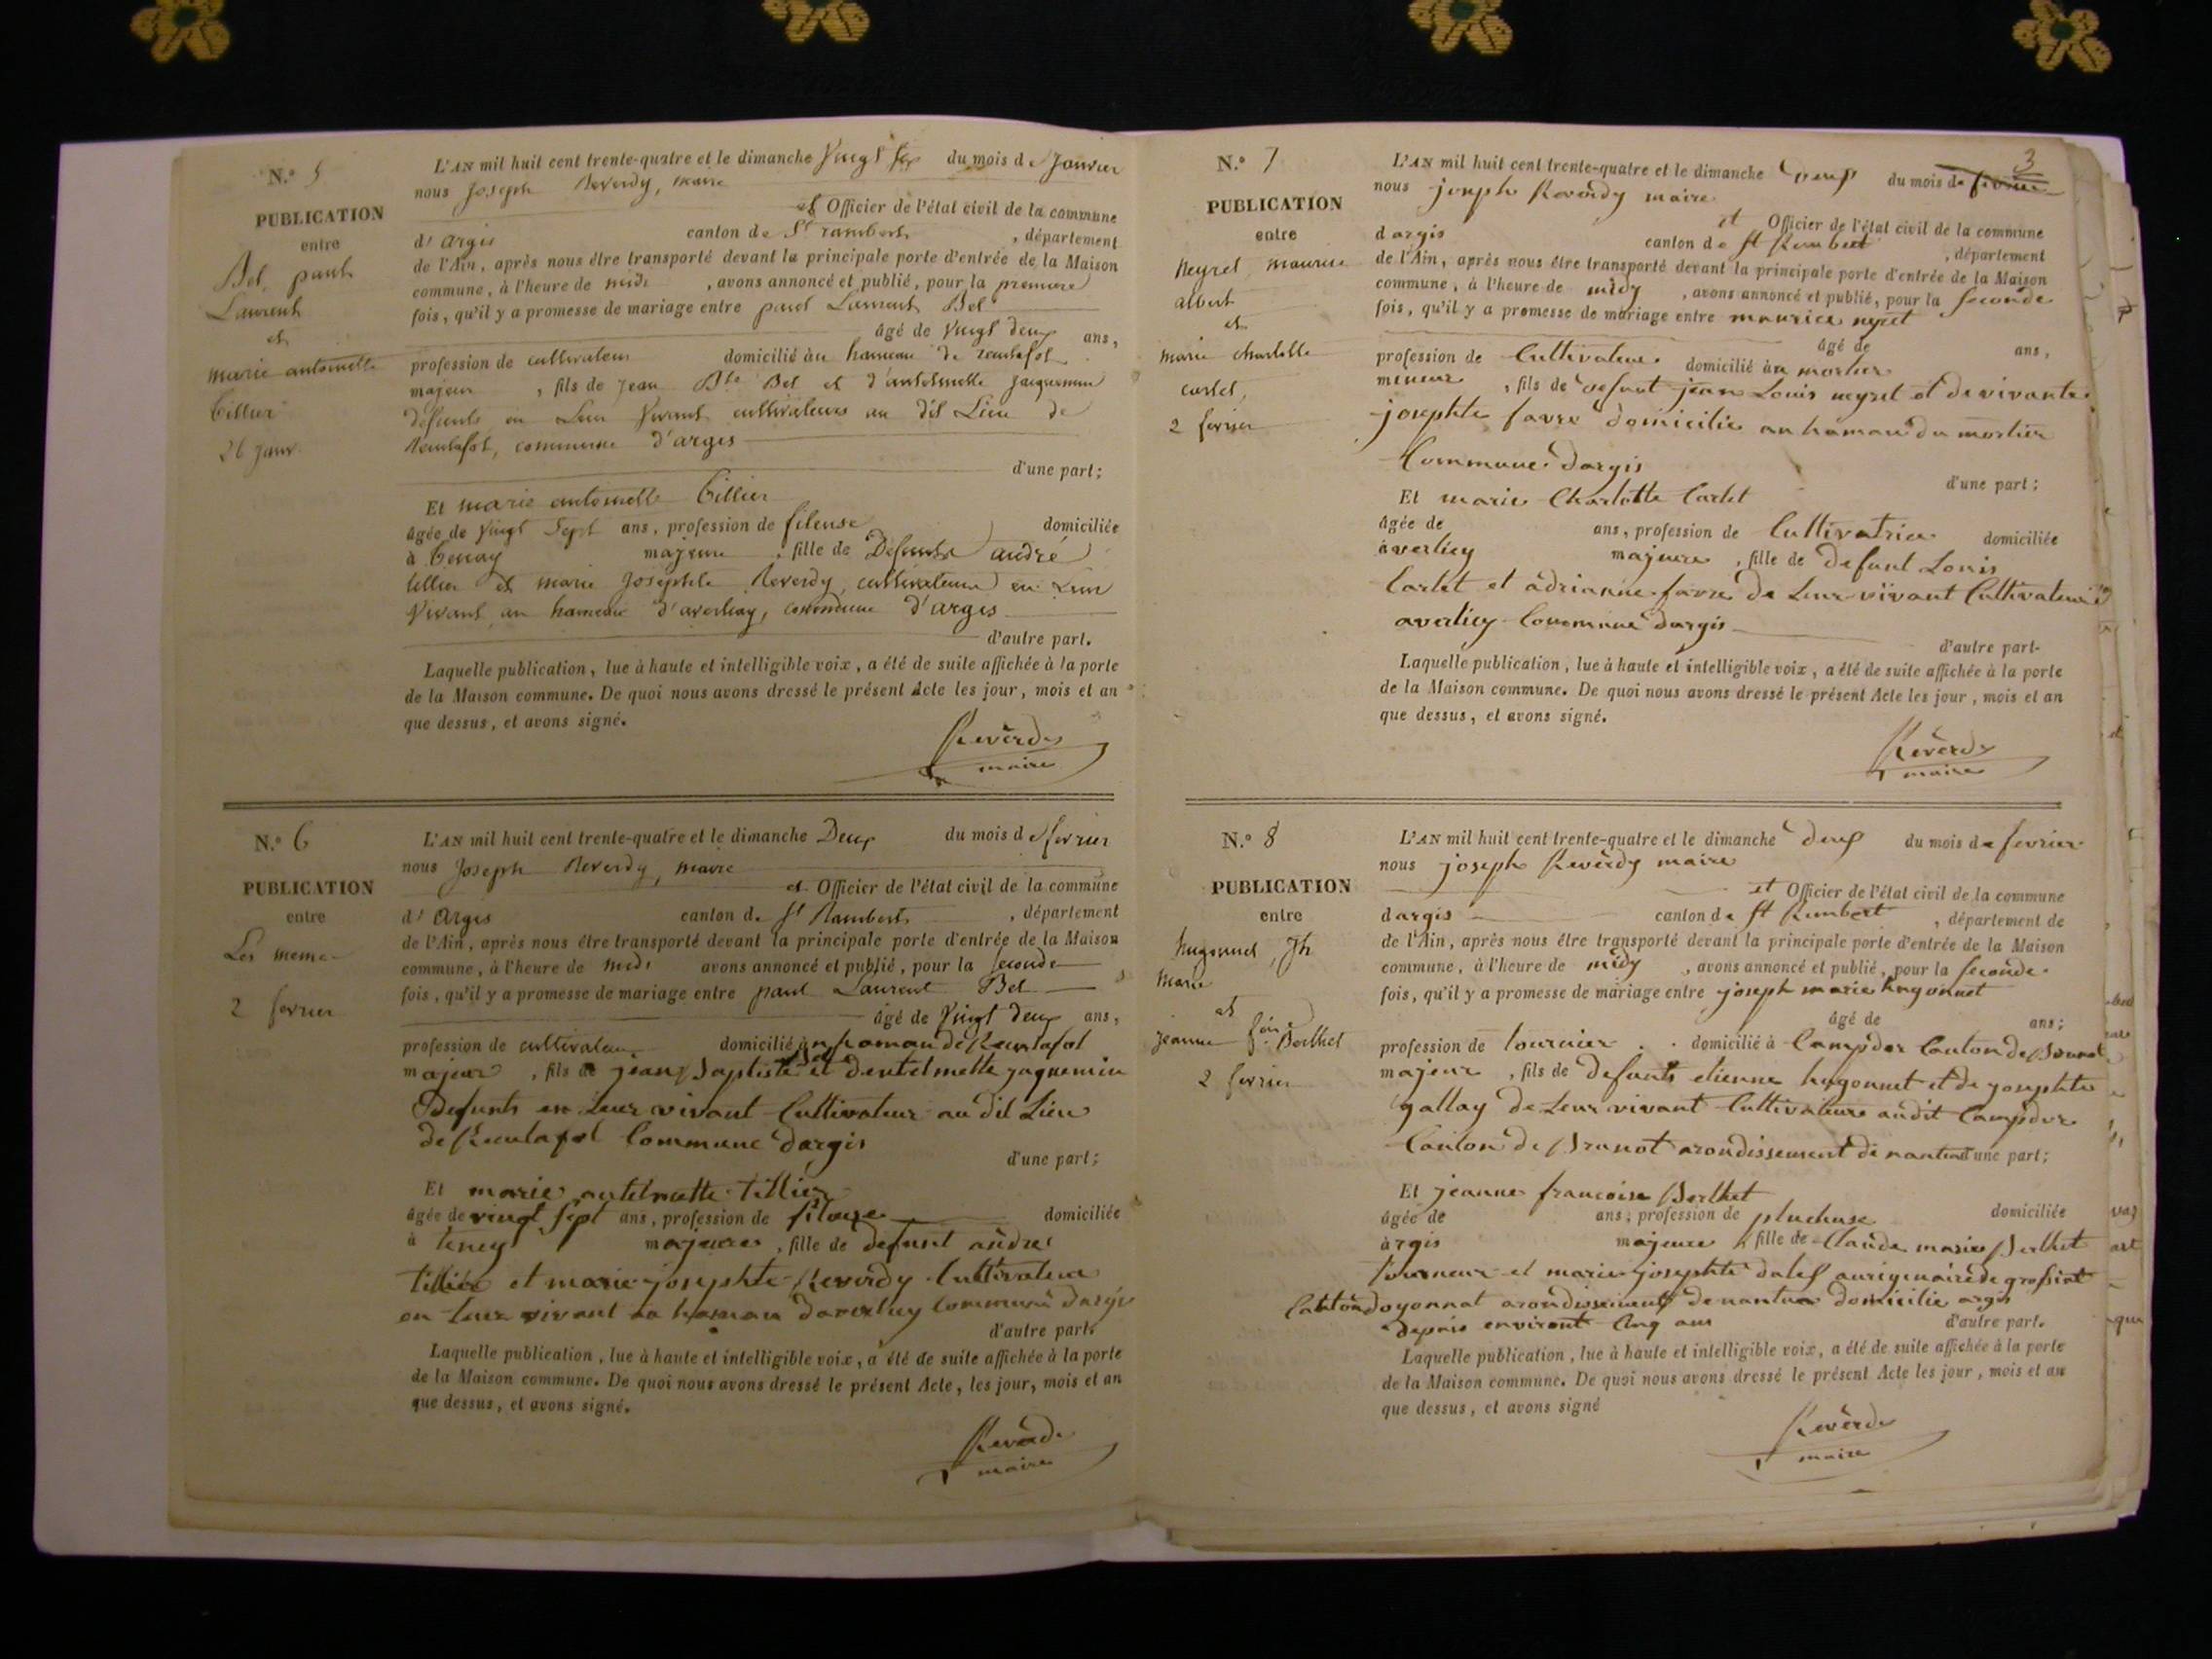 N.° 5
PUBLICATION
entre
Bel paul
Laurent
et
marie antoinette
tillier
26 janv.
L'AN mil huit cent trente-quatre et le dimanche vingt six du mois de Janvier
nous Joseph Reverdy, maire
et Officier de l'état civil de la commune
d'argis canton de St rambert, département
de l'Ain, après nous être transporté devant la principale porte d'entrée de la Maison
commune, à l'heure de midi, avons annoncé et publié, pour la premiere
fois, qu'il y a promesse de mariage entre paul Laurent Bel
âgé de vingt deux ans,
profession de cultivateur domicilié au hameau de reculafol
majeur, fils de jean Bte Bel et d'antelmette jacquemin
defunts en Leur vivant cultivateurs au dit Lieu de
Reculafol, commune d'argis
d'une part;
Et marie antoinette tillier
âgée de vingt sept ans, profession de fileuse domiciliée
à tenay majeure, fille de Defunts andré
tillier et marie josephte Reverdy, cultivateurs en Leur
vivant au hameau d'averliay, commune d'argis
d'autre part.
Laquelle publication, lue à haute et intelligible voix, a été de suite affichée à la porte
de la Maison commune. De quoi nous avons dressé le présent Acte les jour, mois et an
que dessus, et avons signé.
Reverdy
maire
N.° 6
PUBLICATION
entre
Les meme
2 fevrier
L'AN mil huit cent trente-quatre et le dimanche Deux du mois de fevrier
nous Joseph Reverdy, maire
et Officier de l'état civil de la commune
d'Argis canton de St Rambert, département
de l'Ain, après nous être transporté devant la principale porte d'entrée de la Maison
commune, à l'heure de midi avons annoncé et publié, pour la seconde
fois, qu'il y a promesse de mariage entre paul Laurent Bel
âgé de vingt deux ans,
profession de cultivateur domicilié à hamau de Reculafol
majeur, fils de jean Baptiste Bel et dentelmette jaquemin
Defunts en Leur vivant Cultivateur au dit Lieu
de Reculafol Commune dargis
d'une part;
Et marie antelmette tillier
âgée de vingt sept ans, profession de fileuse domiciliée
à teney majeure, fille de defunt andre
tillier et marie josephte Reverdy Cultivateur
en leur vivant au hamau daverliey Commune dargis
d'autre part.
Laquelle publication, lue à haute et intelligible voix, a été de suite affichée à la porte
de la Maison commune. De quoi nous avons dressé le présent Acte, les jour, mois et an
que dessus, et avons signé.
Reverdy
maire
3
N.° 7
PUBLICATION
entre
Neyret maurice
albert
et
marie charlotte
carlet,
2 fevrier
L'AN mil huit cent trente-quatre et le dimanche deux du mois de fevrier
nous joseph Reverdy maire
et Officier de l'état civil de la commune
dargis canton de St Rambert, département
de l'Ain, après nous être transporté devant la principale porte d'entrée de la Maison
commune, à l'heure de midy, avons annoncé et publié, pour la seconde
fois, qu'il y a promesse de mariage entre maurice neyret
âgé de ans,
profession de Cultivateur domicilié à au mortier
mineur, fils de defunt jean Louis neyret et de vivante
josephte favre domicilie au hamau du mortier
Commune dargis
d'une part;
Et marie Charlotte Carlet
âgée de ans, profession de Cultivatrice domiciliée
à verliey majeure, fille de defunt Louis
Carlet et adrianne favre de Leur vivant Cultivateur
averliey Commune dargis
d'autre part.
Laquelle publication, lue à haute et intelligible voix, a été de suite affichée à la porte
de la Maison commune. De quoi nous avons dressé le présent Acte les jour, mois et an
que dessus, et avons signé.
Reverdy
maire
N.° 8
PUBLICATION
entre
hugonnet, Jh
Marie
et
jeanne foise Berthet
2 fevrier
L'AN mil huit cent trente-quatre et le dimanche deux du mois de fevrier
nous joseph Reverdy maire
et Officier de l'état civil de la commune
dargis canton de St Rambert, département de
de l'Ain, après nous être transporté devant la principale porte d'entrée de la Maison
commune, à l'heure de midy, avons annoncé et publié, pour la seconde
fois, qu'il y a promesse de mariage entre joseph marie hugonnet
âgé de ans;
profession de domicilié à Campdor Canton de
majeur, fils de defunts etienne hugonnet et de josephte
gallay de Leur vivant Cultivateurs audit Campdor
Canton de Brunot arondissement de nantua d'une part;
Et jeanne francoise Berthet
âgée de ans; profession de plucheuse domiciliée
à rgis majeure fille de Claude marie Berthet
tourneur et marie josephte dalef aurigenaire de grossiat
Canton doyonnat arondissement de nantua domicilie argis
depuis environt Cinq ans
d'autre part.
Laquelle publication, lue à haute et intelligible voix, a été de suite affichée à la porte
de la Maison commune. De quoi nous avons dressé le présent Acte les jour, mois et an
que dessus, et avons signé
Reverdy
maire